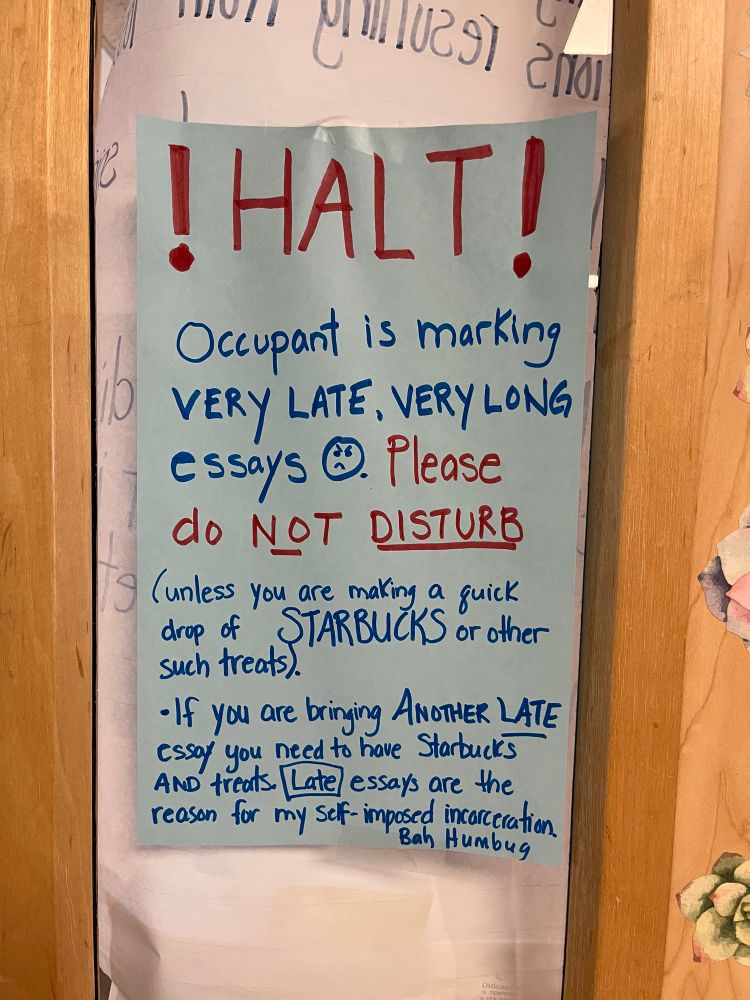 ! HALT !
Occupant is marking
VERY LATE, VERY LONG
essays ☹. Please
do NOT DISTURB
(unless you are making a quick
drop of STARBUCKS or other
such treats).
•If you are bringing ANOTHER LATE
essay you need to have Starbucks
AND treats. Late essays are the
reason for my self-imposed incarceration.
Bah Humbug